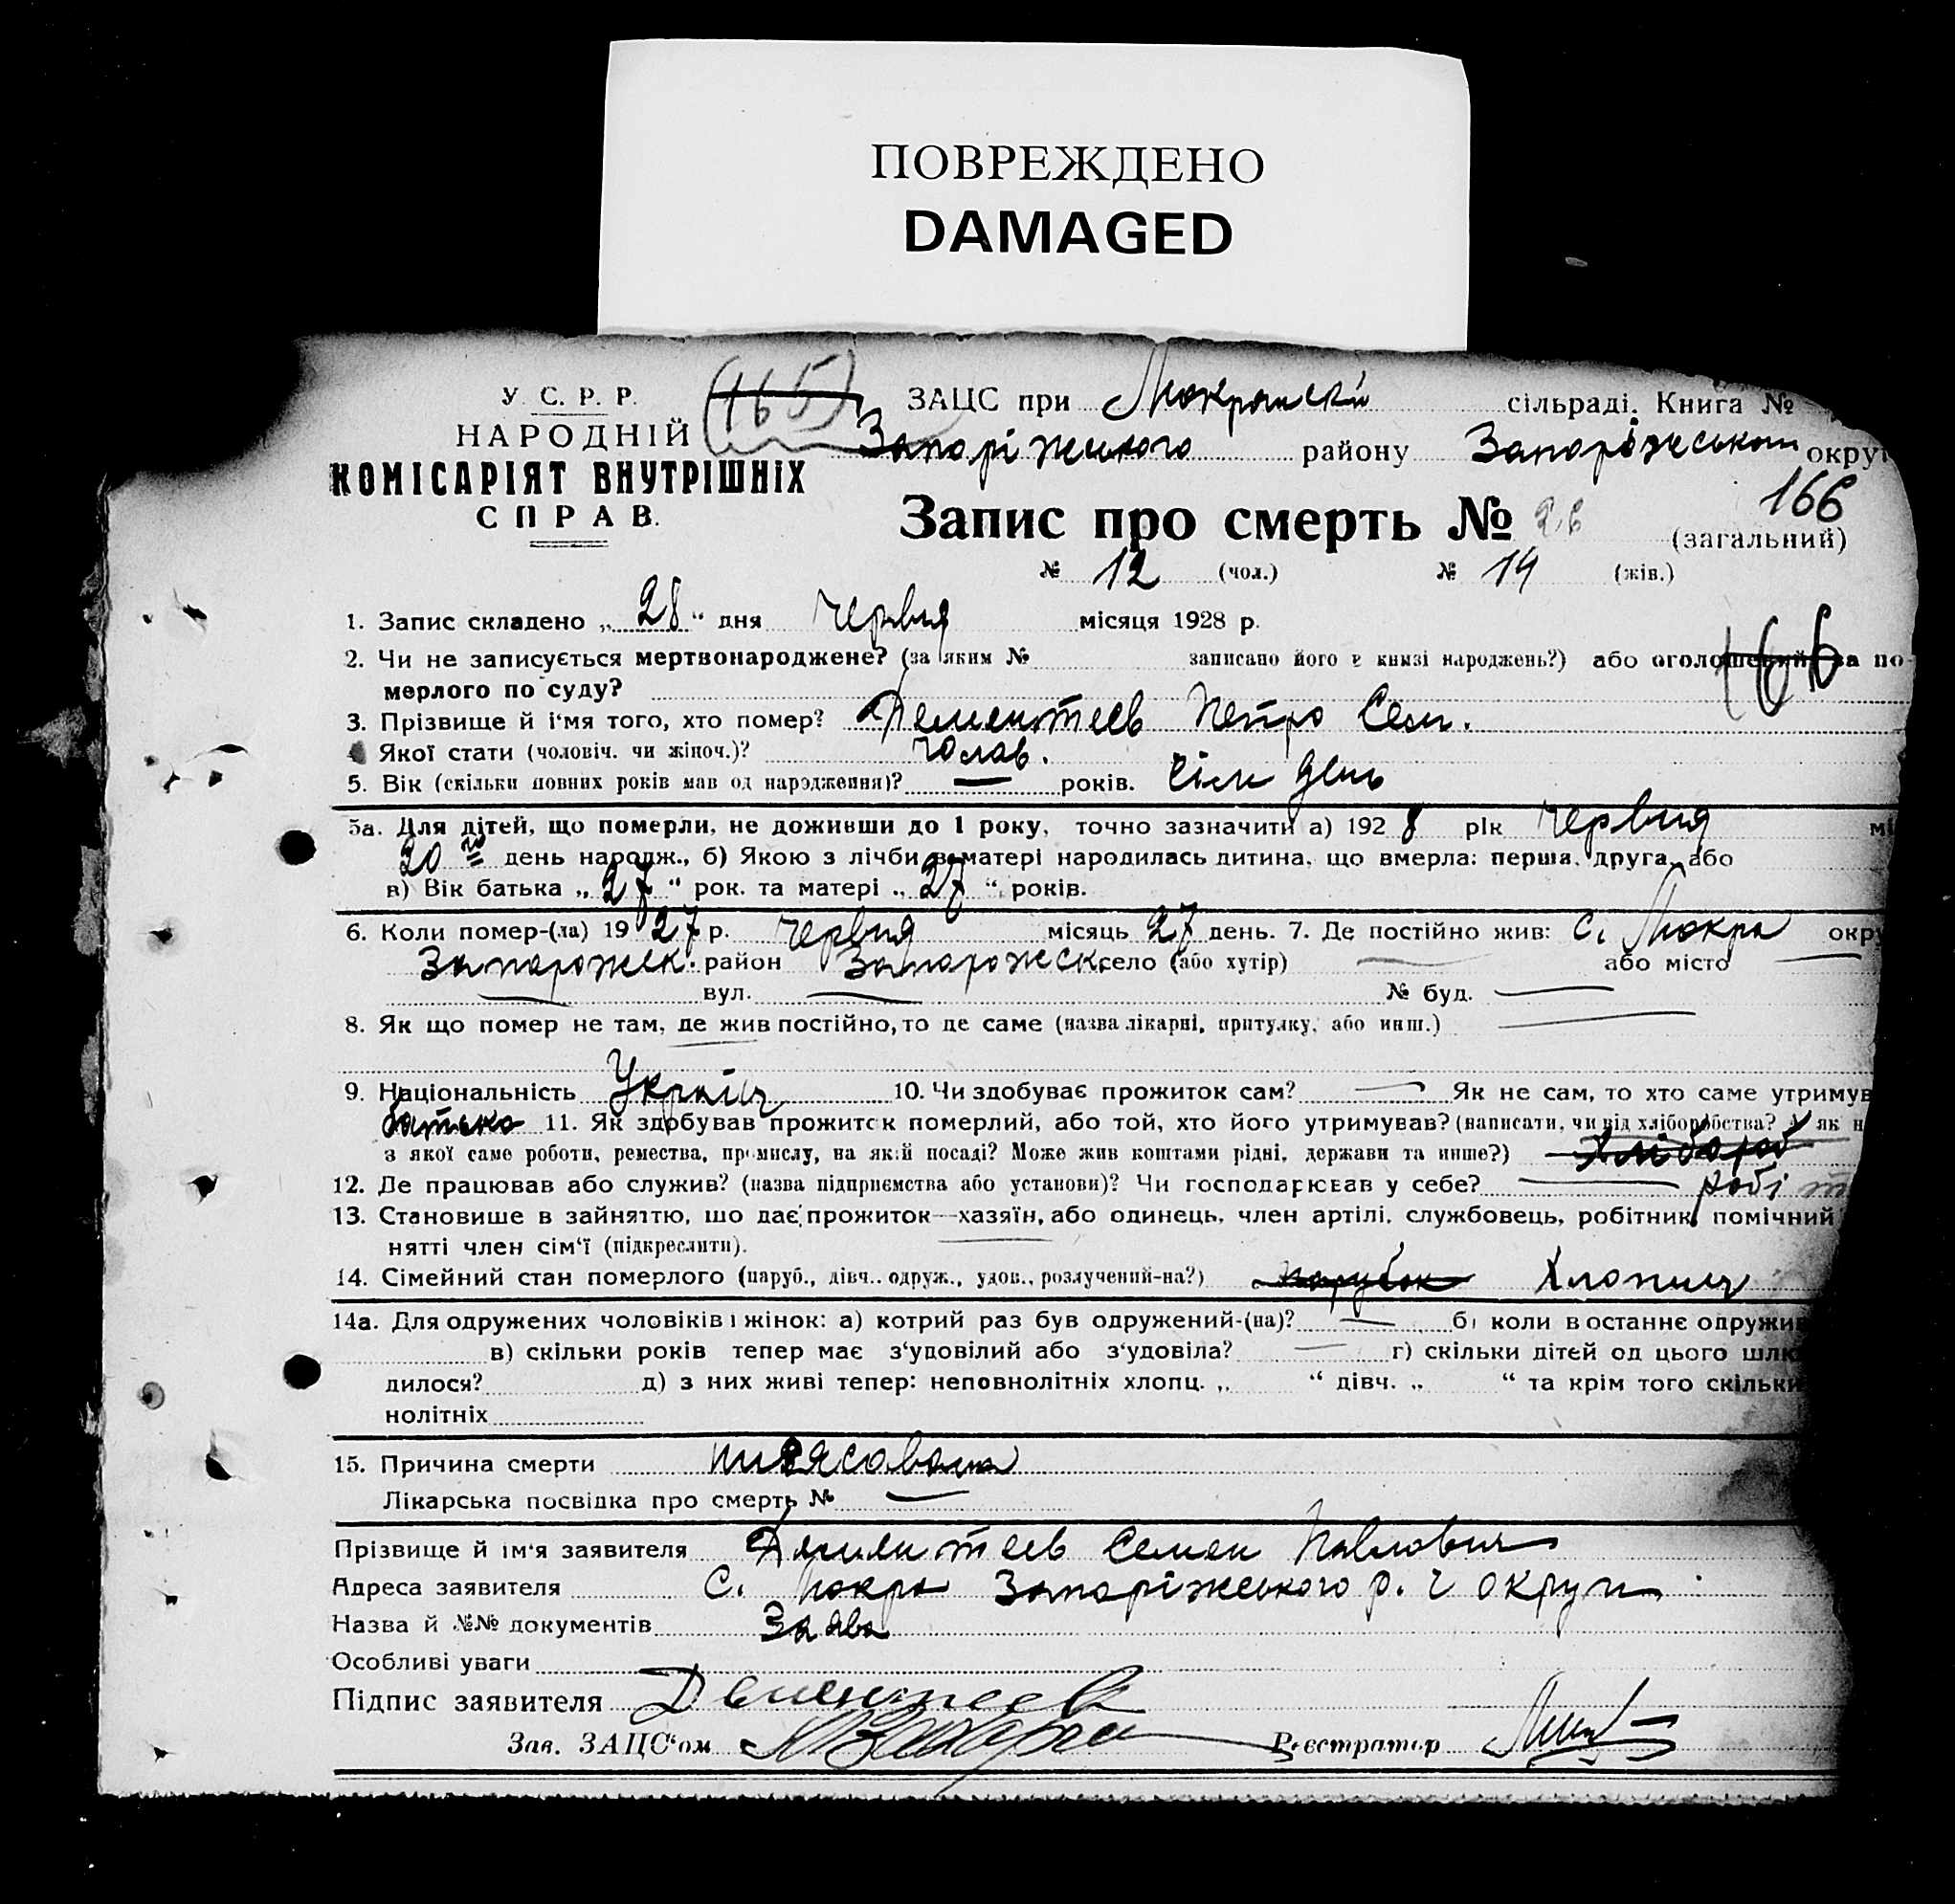 ПОВРЕЖДЕНО
DAMAGED
У. С. Р. Р.
НАРОДНІЙ
КОМІСАРІЯТ ВНУТРІШНІХ
СПРАВ.
(165)
ЗАЦС при сільраді. Книга №
Запоріжського району Запоріжського окру
166
Запис про смерть № 26 (загальний)
№ 12 (чол.) № 14 (жін.)
1. Запис складено „28" дня червня місяця 1928 р.
166
2. Чи не записується мертвонароджене? (за яким № записано його в книзі народжень?) або оголошений за по-
мерлого по суду?
3. Прізвище й і'мя того, хто помер? Дементеев Петро Сем.
4 Якої стати (чоловіч. чи жіноч.)? чолов.
5. Вік (скільки повних років мав од народження)? — років. сім день
5а. Для дітей, що померли, не доживши до 1 року, точно зазначити а) 1928 рік червня мі
20 го день народж., б) Якою з лічби в матері народилась дитина, що вмерла: перша, друга, або
в) Вік батька „27" рок. та матері „27" років.
6. Коли помер-(ла) 1927 р. червня місяць 27 день. 7. Де постійно жив: с. Мокра окру
Запорожск. район Запорожск. село (або хутір) — або місто —
— вул. — № буд. —
8. Як що помер не там, де жив постійно, то де саме (назва лікарні, притулку, або инш.) —
9. Національність Украінц 10. Чи здобуває прожиток сам? — Як не сам, то хто саме утримув
батько 11. Як здобував прожиток померлий, або той, хто його утримував? (написати, чи від хліборобства? А як н
з якої саме роботи, ремества, промислу, на якій посаді? Може жив коштами рідні, держави та инше?) Хлібороб
12. Де працював або служив? (назва підприємства або установи)? Чи господарював у себе? — робі
13. Становише в зайняттю, шо дає прожиток—хазяїн, або одинець, член артілі, службовець, робітник, помічний
нятті член сім'ї (підкреслити).
14. Сімейний стан померлого (паруб., дівч.. одруж., удов., розлучений-на?) парубок Хлопиц
14а. Для одружених чоловіків і жінок: а) котрий раз був одружений-(на)? — б) коли в останнє одружи
в) скільки років тепер має з'удовілий або з'удовіла? — г) скільки дітей од цього шлю
дилося? д) з них живі тепер: неповнолітніх хлопц. „ " дівч. „ " та крім того скільки
нолітніх
15. Причина смерти
Лікарська посвідка про смерть № —
Прізвище й ім'я заявителя Дементеев Семен Павлович
Адреса заявителя С. Мокра Запоріжського р. і округи
Назва й №№ документів Заява
Особливі уваги
Підпис заявителя Дементеев
Зав. ЗАЦС'ом Реєстратор